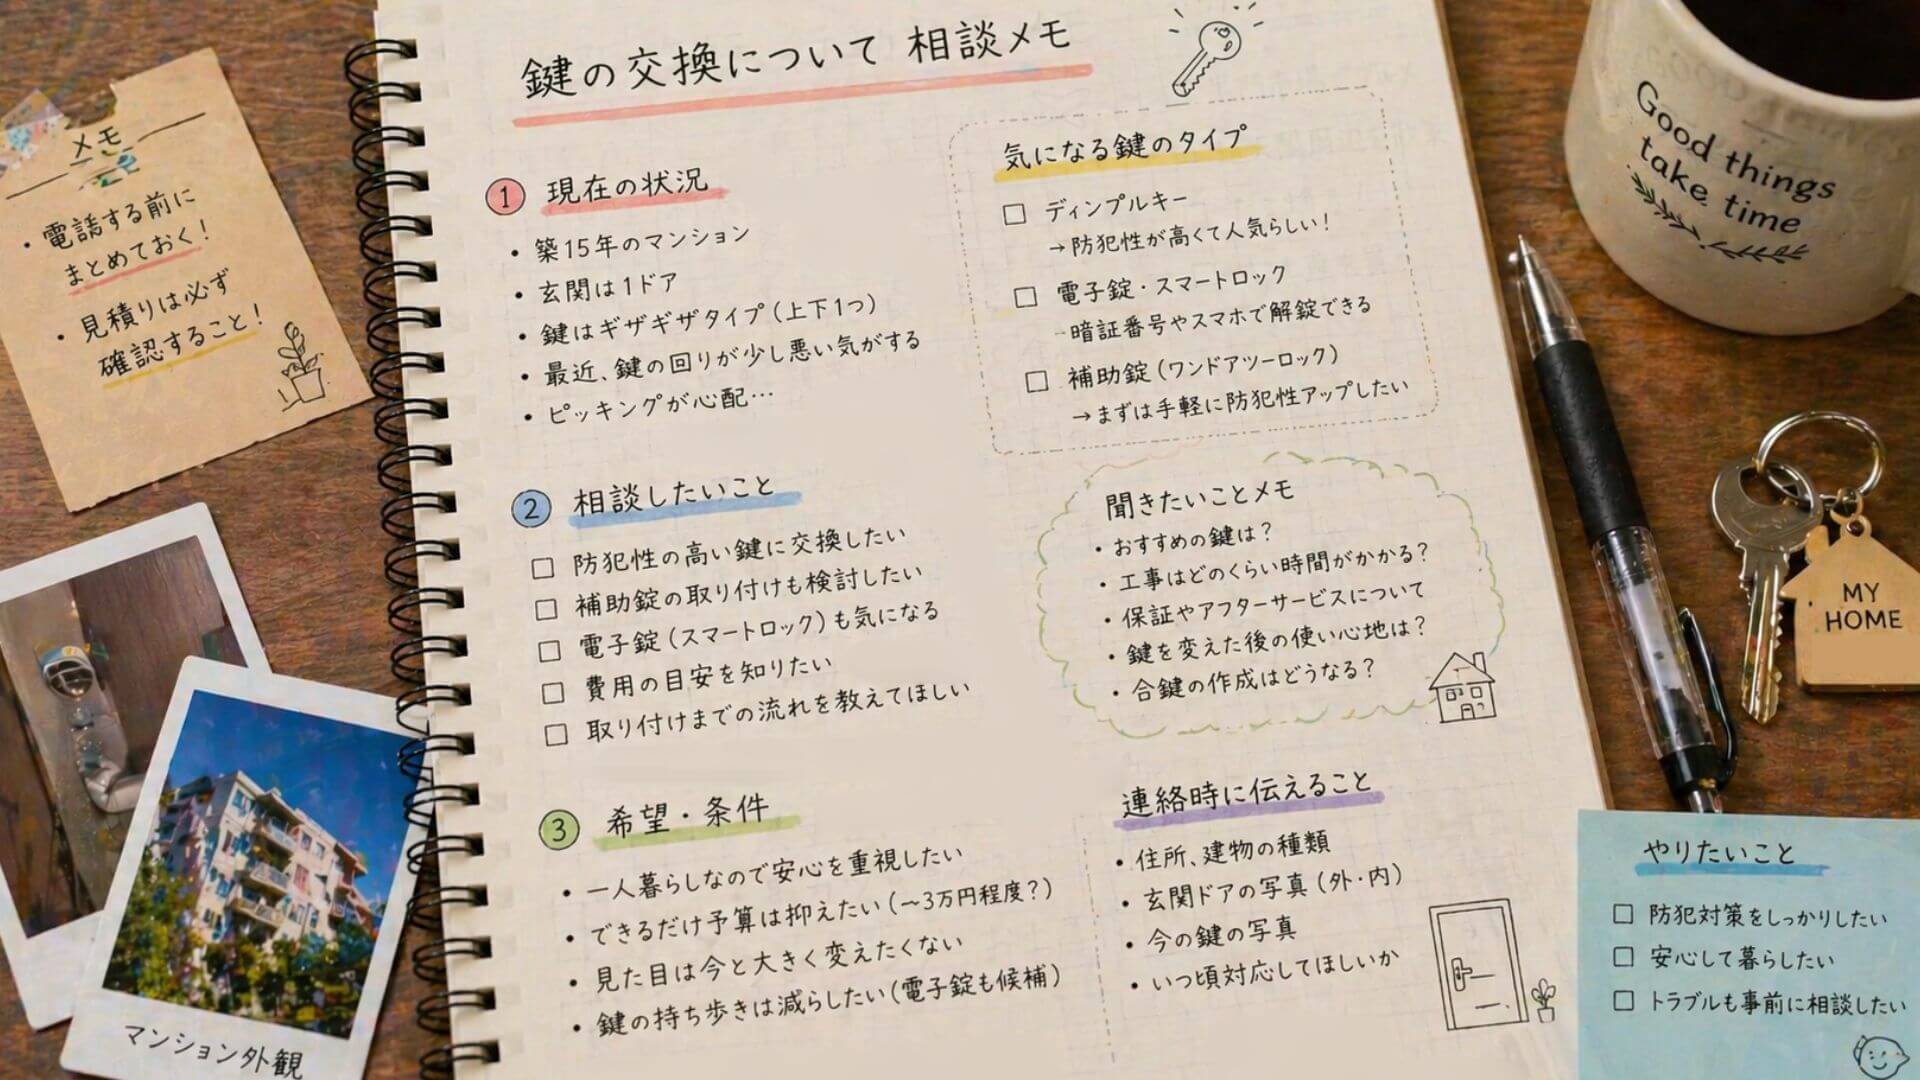 メモ
・電話する前に
まとめておく！
・見積りは必ず
確認すること！
マンション外観
鍵の交換について 相談メモ
① 現在の状況
・築15年のマンション
・玄関は1ドア
・鍵はギザギザタイプ（上下1つ）
・最近、鍵の回りが少し悪い気がする
・ピッキングが心配…
② 相談したいこと
□ 防犯性の高い鍵に交換したい
□ 補助錠の取り付けも検討したい
□ 電子錠（スマートロック）も気になる
□ 費用の目安を知りたい
□ 取り付けまでの流れを教えてほしい
③ 希望・条件
・一人暮らしなので安心を重視したい
・できるだけ予算は抑えたい（〜3万円程度？）
・見た目は今と大きく変えたくない
・鍵の持ち歩きは減らしたい（電子錠も候補）
気になる鍵のタイプ
□ ディンプルキー
→防犯性が高くて人気らしい！
□ 電子錠・スマートロック
-暗証番号やスマホで解錠できる
□ 補助錠（ワンドアツーロック）
→まずは手軽に防犯性アップしたい
聞きたいことメモ
・おすすめの鍵は？
・工事はどのくらい時間がかかる？
・保証やアフターサービスについて
・鍵を変えた後の使い心地は？
・合鍵の作成はどうなる？
連絡時に伝えること
・住所、建物の種類
・玄関ドアの写真（外・内）
・今の鍵の写真
・いつ頃対応してほしいか
Good things
take time
MY
HOME
やりたいこと
□ 防犯対策をしっかりしたい
□ 安心して暮らしたい
□ トラブルも事前に相談したい